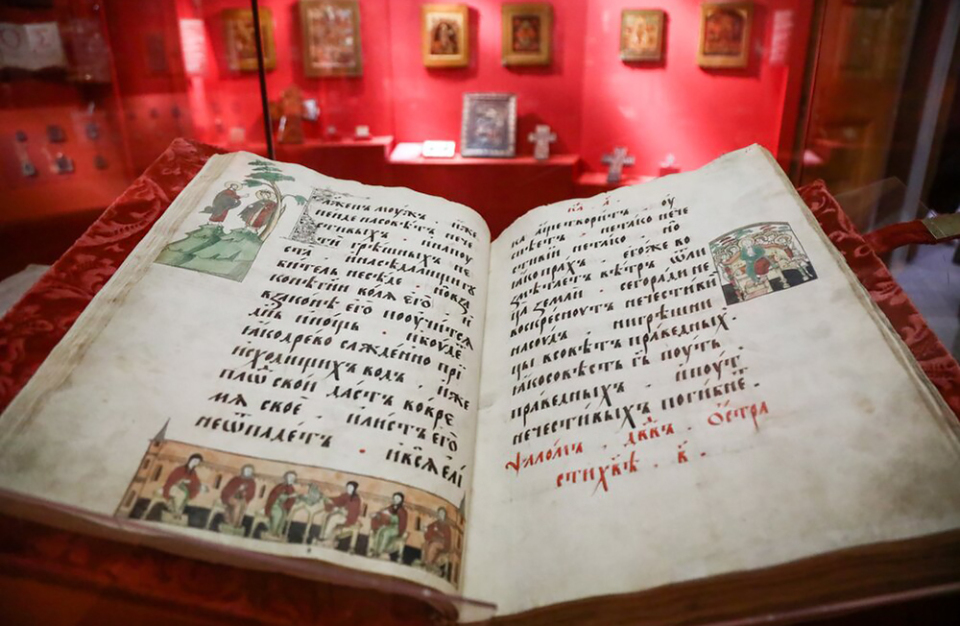 Блаженъ моужъ . иже
неиде насовѣтъ нече
стивыхъ . инапоу
ти грѣшныхъ не
ста . инаседалищигу
битель неседе . новза
конѣгни волꙗ его̀ . и
взаконѣ его поучитсѧ
днь инощь . ибоуде
ꙗкодрево саждѐно прї
исходищихъ водъ . иже
плоⷣ свой дастъ вовре
мѧ своѐ . илистъ его̀
неѿпадетъ . ивсѧ елі
ка аще творитъ . оу
спѣетъ . нетако нече
стивіи нетако . но
ꙗкопрахъ . егоже во
змѣтаетъ вѣтръ ѿли
ца земли . сегоради не
воскресноутъ нечестивіи
насоудъ . нигрѣшни
цы всовѣтъ праведныхъ .
ꙗкосовѣсть гь поуть
праведныхъ . ипоуть
нечестивыхъ погибне .
Ѱаломъ . двдвъ .
стихвъ . в .